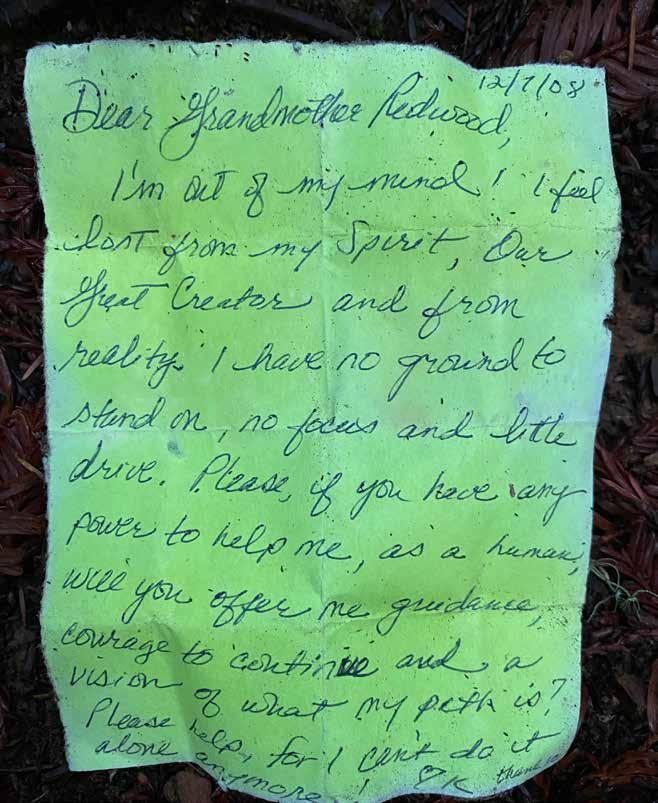 12/7/08
Dear Grandmother Redwood,
I'm out of my mind! I feel
lost from my Spirit, Our
Great Creator and from
reality. I have no ground to
stand on, no focus and little
drive. Please, if you have any
power to help me, as a human,
will you offer me guidance,
courage to continue and a
vision of what my path is?
Please help, for I can't do it
alone anymore!